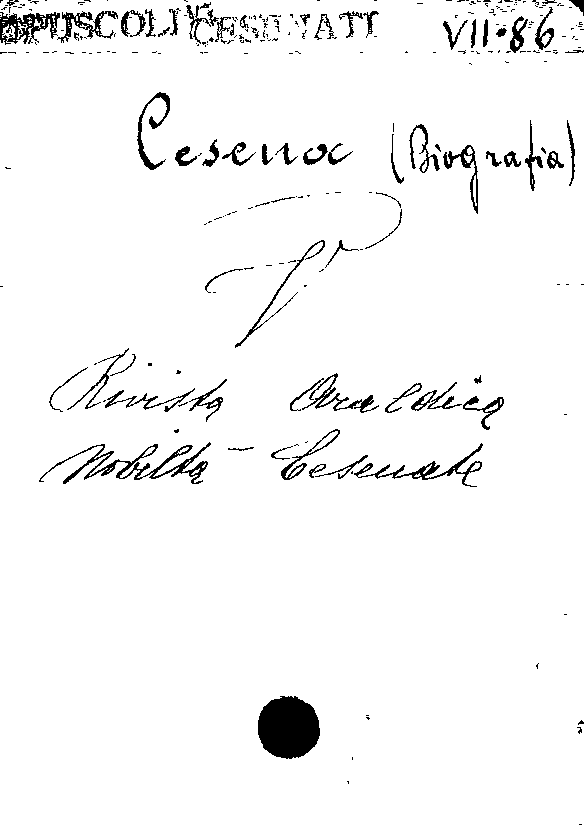 OPUSCOLI CESENATI VII·86
Cesena (Biografia)
V.
Rivista Araldica
Nobiltà Cesenate